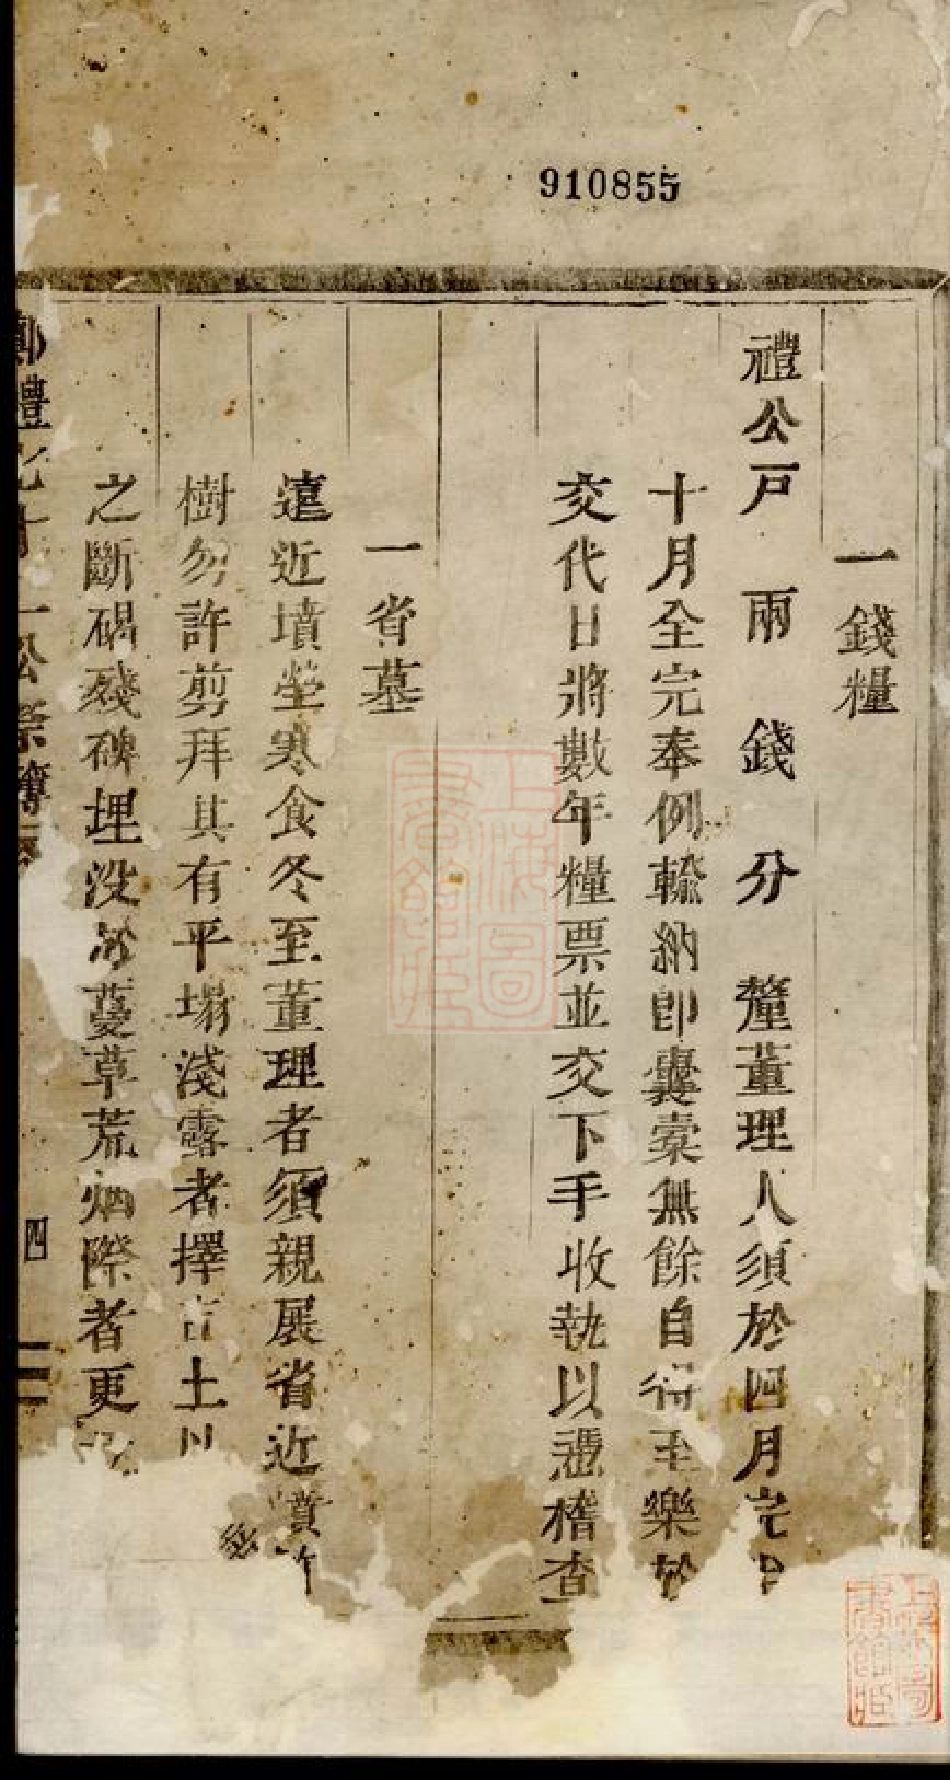 910855
一錢糧
禮公戸 兩 錢 分 釐董理人須於四月完
十月全完奉例輸納即囊橐無餘自得至樂於
交代日將數年糧票並交下手收執以憑稽查
一省墓
遠近墳塋寒食冬至董理者須親展省近墳
樹勿許剪拜其有平塌淺露者擇吉土以
之斷碣殘碑埋没於蔓草荒烟際者更
禮
一公祭簿
四
上海圖書館藏
上海圖書館藏